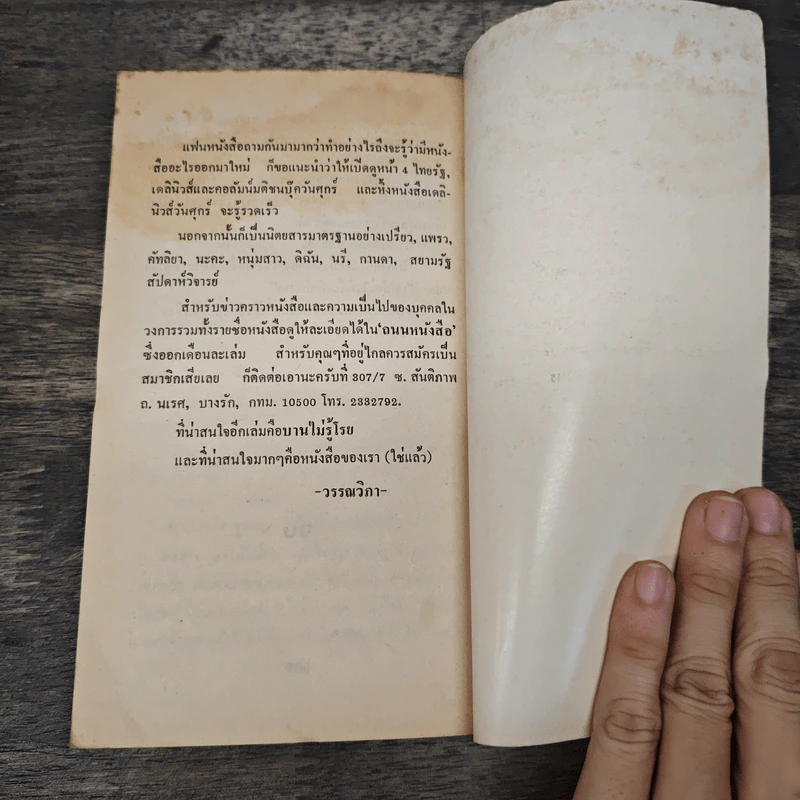 แฟนหนังสือถามกันมามากว่าทำอย่างไรถึงจะรู้ว่ามีหนัง-
สืออะไรออกมาใหม่ ก็ขอแนะนำว่าให้เปิดดูหน้า 4 ไทยรัฐ,
เดลินิวส์และคอลัมน์มติชนบุ๊ควันศุกร์ และทิ้งหนังสือเดลิ-
นิวส์วันศุกร์ จะรู้รวดเร็ว
นอกจากนั้นก็เป็นนิตยสารมาตรฐานอย่างเปรียว, แพรว,
คัทลิยา, นะคะ, หนุ่มสาว, ดิฉัน, นรี, กานดา, สยามรัฐ
สัปดาห์วิจารย์
สำหรับข่าวคราวหนังสือและความเป็นไปของบุคคลใน
วงการรวมทั้งรายชื่อหนังสือดูให้ละเอียดได้ใน'ถนนหนังสือ'
ซึ่งออกเดือนละเล่ม สำหรับคุณๆที่อยู่ไกลควรสมัครเป็น
สมาชิกเสียเลย ก็ติดต่อเอานะครับที่ 307/7 ซ. สันติภาพ
ถ. นเรศ, บางรัก, กทม. 10500 โทร. 2332792.
ที่น่าสนใจอีกเล่มคือบานไม่รู้โรย
และที่น่าสนใจมากๆคือหนังสือของเรา (ใช่แล้ว)
-วรรณวิภา-